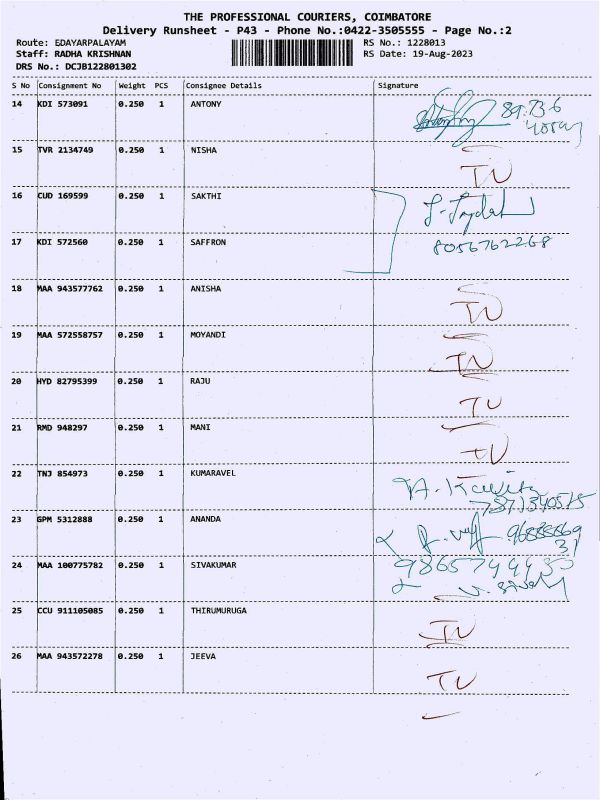 THE PROFESSIONAL COURIERS, COIMBATORE
Delivery Runsheet - P43 - Phone No.:0422-3505555 - Page No.:2
Route: EDAYARPALAYAM RS No.: 1228013
Staff: RADHA KRISHNAN RS Date: 19-Aug-2023
DRS No.: DCJB122801302
S No Consignment No Weight PCS Consignee Details Signature
14 KDI 573091 0.250 1 ANTONY
15 TVR 2134749 0.250 1 NISHA
16 CUD 169599 0.250 1 SAKTHI
17 KDI 572560 0.250 1 SAFFRON 8056762268
18 MAA 943577762 0.250 1 ANISHA
19 MAA 572558757 0.250 1 MOYANDI
20 HYD 82795399 0.250 1 RAJU
21 RMD 948297 0.250 1 MANI
22 TNJ 854973 0.250 1 KUMARAVEL
23 GPM 5312888 0.250 1 ANANDA
24 MAA 100775782 0.250 1 SIVAKUMAR
25 CCU 911105085 0.250 1 THIRUMURUGA
26 MAA 943572278 0.250 1 JEEVA